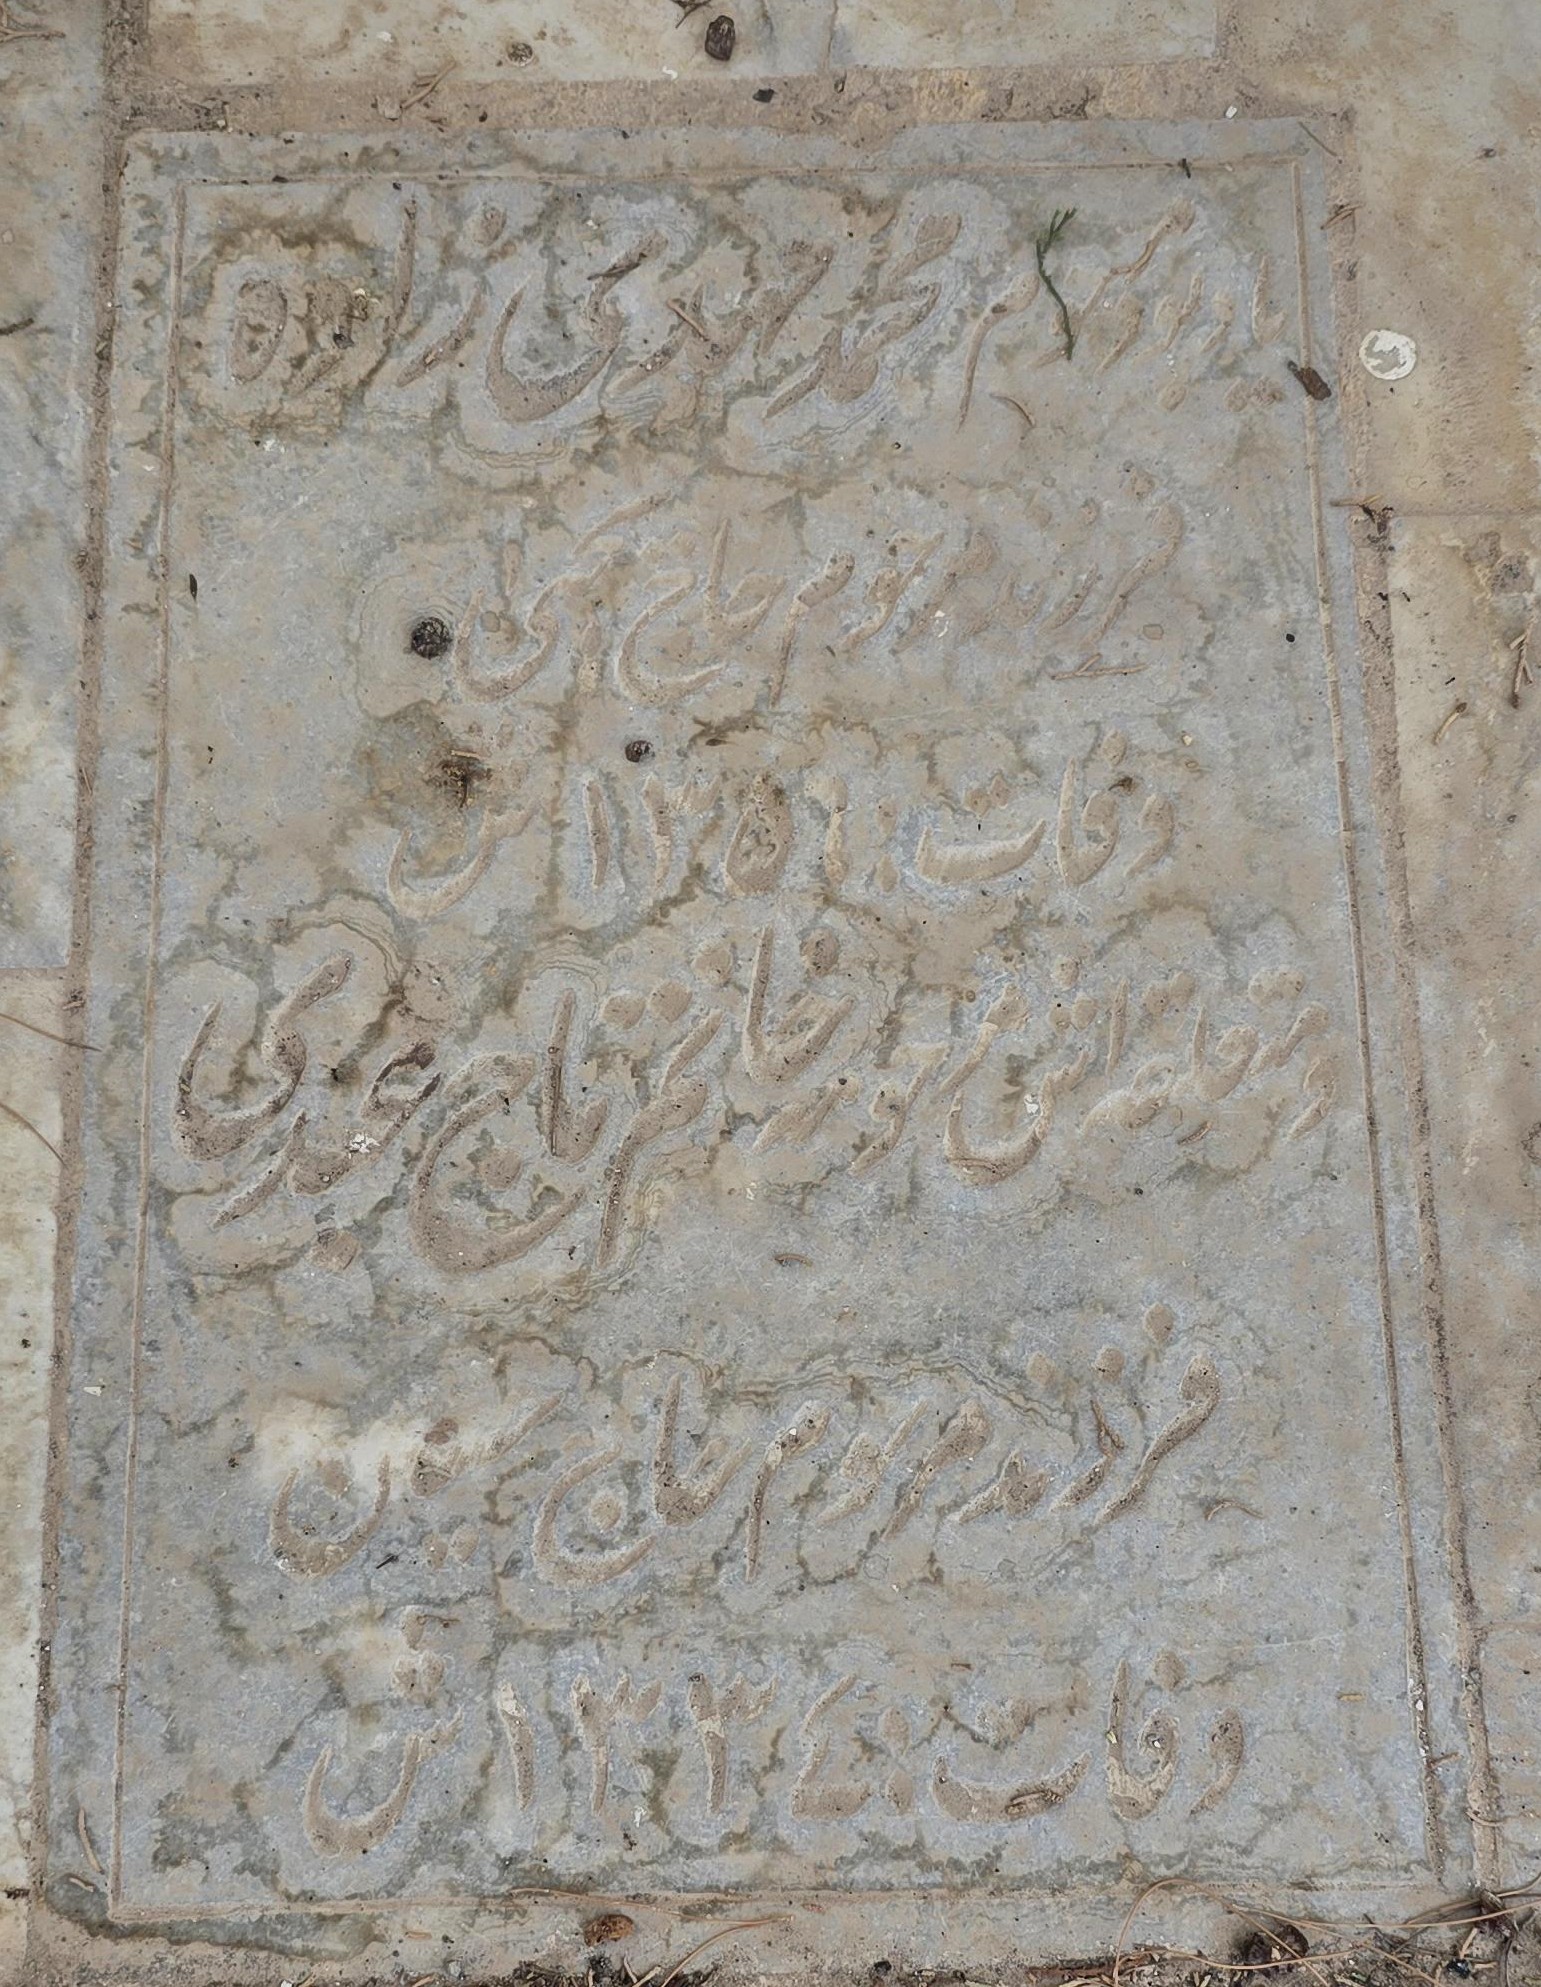 یادبود مرحوم محمد مهدی زاده
فرزند مرحوم حاج
وفات: ۱۳۵۶ ش
و متعلقه اش حور خانم تاج عبدی
فرزند مرحوم حاج حسین
وفات: ۱۳۳۴ ش